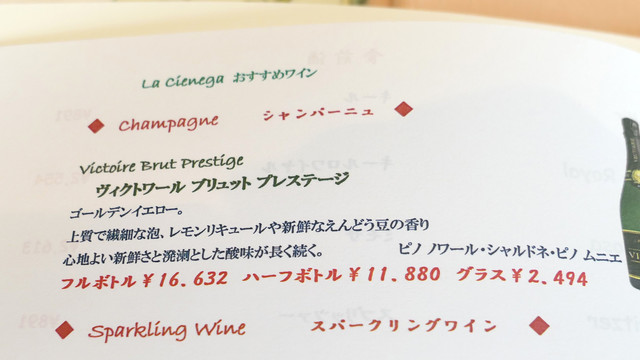 La Cienega おすすめワイン
◆ Champagne シャンパーニュ ◆
Victoire Brut Prestige
ヴィクトワール ブリュット プレステージ
ゴールデンイエロー。
上質で繊細な泡、レモンリキュールや新鮮なえんどう豆の香り
心地よい新鮮さと溌溂とした酸味が長く続く。 ピノ ノワール・シャルドネ・ピノ ムニエ
フルボトル¥16.632 ハーフボトル¥11.880 グラス¥2.494
◆ Sparkling Wine スパークリングワイン ◆